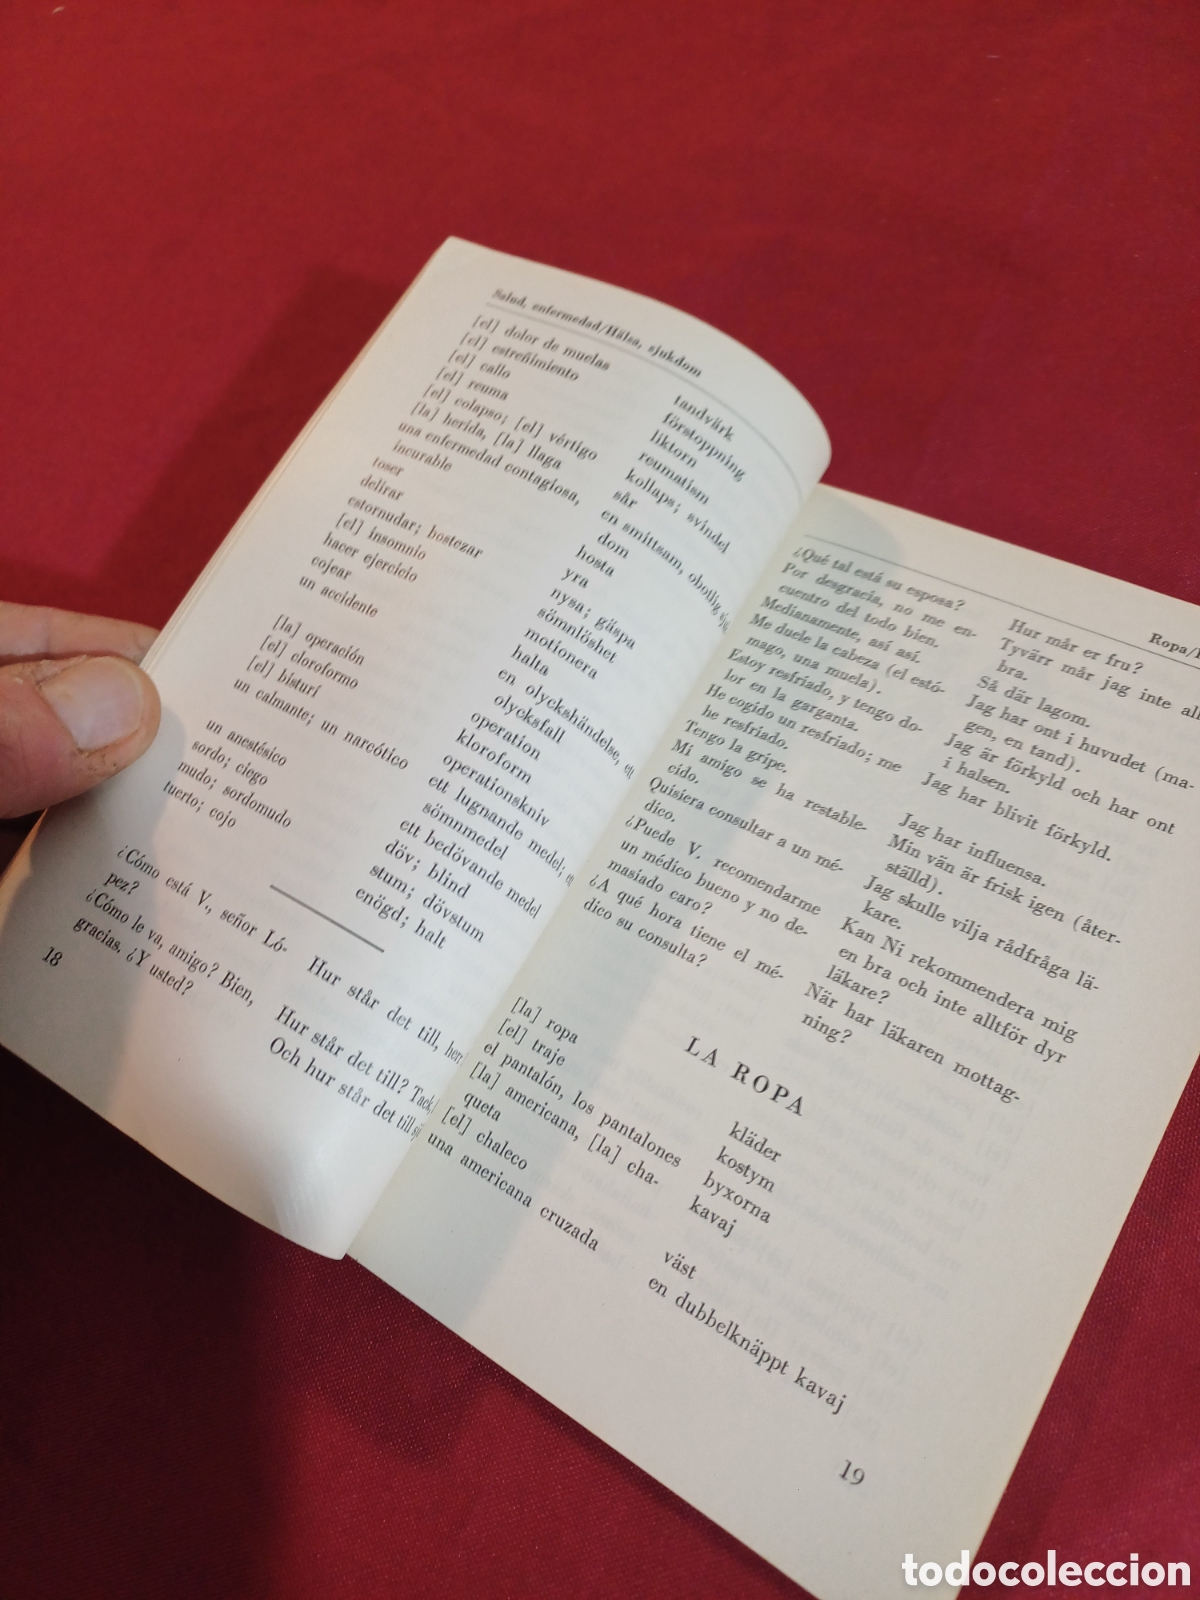 Salud, enfermedad/Hälsa, sjukdom
[el] dolor de muelas
[el] estreñimiento
[el] callo
[el] reuma
[el] colapso; [el] vértigo
[la] herida, [la] llaga
una enfermedad contagiosa,
incurable
toser
delirar
estornudar; bostezar
[el] insomnio
hacer ejercicio
cojear
un accidente
[la] operación
[el] cloroformo
[el] bisturí
un calmante; un narcótico
un anestésico
sordo; ciego
mudo; sordomudo
tuerto; cojo
tandvärk
förstoppning
liktorn
reumatism
kollaps; svindel
sår
en smittsam, obotlig
dom
hosta
yra
nysa; gäspa
sömnlöshet
motionera
halta
en olyckshändelse,
olycksfall
operation
kloroform
operationskniv
ett lugnande medel;
sömnmedel
ett bedövande medel
döv; blind
stum; dövstum
enögd; halt
¿Cómo está V., señor Ló-
pez?
¿Cómo le va, amigo? Bien,
gracias. ¿Y usted?
Hur står det till,
Hur står det till? Tack,
Och hur står det till
18
Ropa/
¿Qué tal está su esposa?
Por desgracia, no me en-
cuentro del todo bien.
Medianamente, así así.
Me duele la cabeza (el estó-
mago, una muela).
Estoy resfriado, y tengo do-
lor en la garganta.
He cogido un resfriado; me
he resfriado.
Tengo la gripe.
Mi amigo se ha restable-
cido.
Quisiera consultar a un mé-
dico.
¿Puede V. recomendarme
un médico bueno y no de-
masiado caro?
¿A qué hora tiene el mé-
dico su consulta?
Hur mår er fru?
Tyvärr mår jag inte
bra.
Så där lagom.
Jag har ont i huvudet (ma-
gen, en tand).
Jag är förkyld och har ont
i halsen.
Jag har blivit förkyld.
Jag har influensa.
Min vän är frisk igen (åter-
ställd).
Jag skulle vilja rådfråga lä-
kare.
Kan Ni rekommendera mig
en bra och inte alltför dyr
läkare?
När har läkaren mottag-
ning?
LA ROPA
[la] ropa
[el] traje
el pantalón, los pantalones
[la] americana, [la] cha-
queta
[el] chaleco
una americana cruzada
kläder
kostym
byxorna
kavaj
väst
en dubbelknäppt kavaj
19
todocoleccion